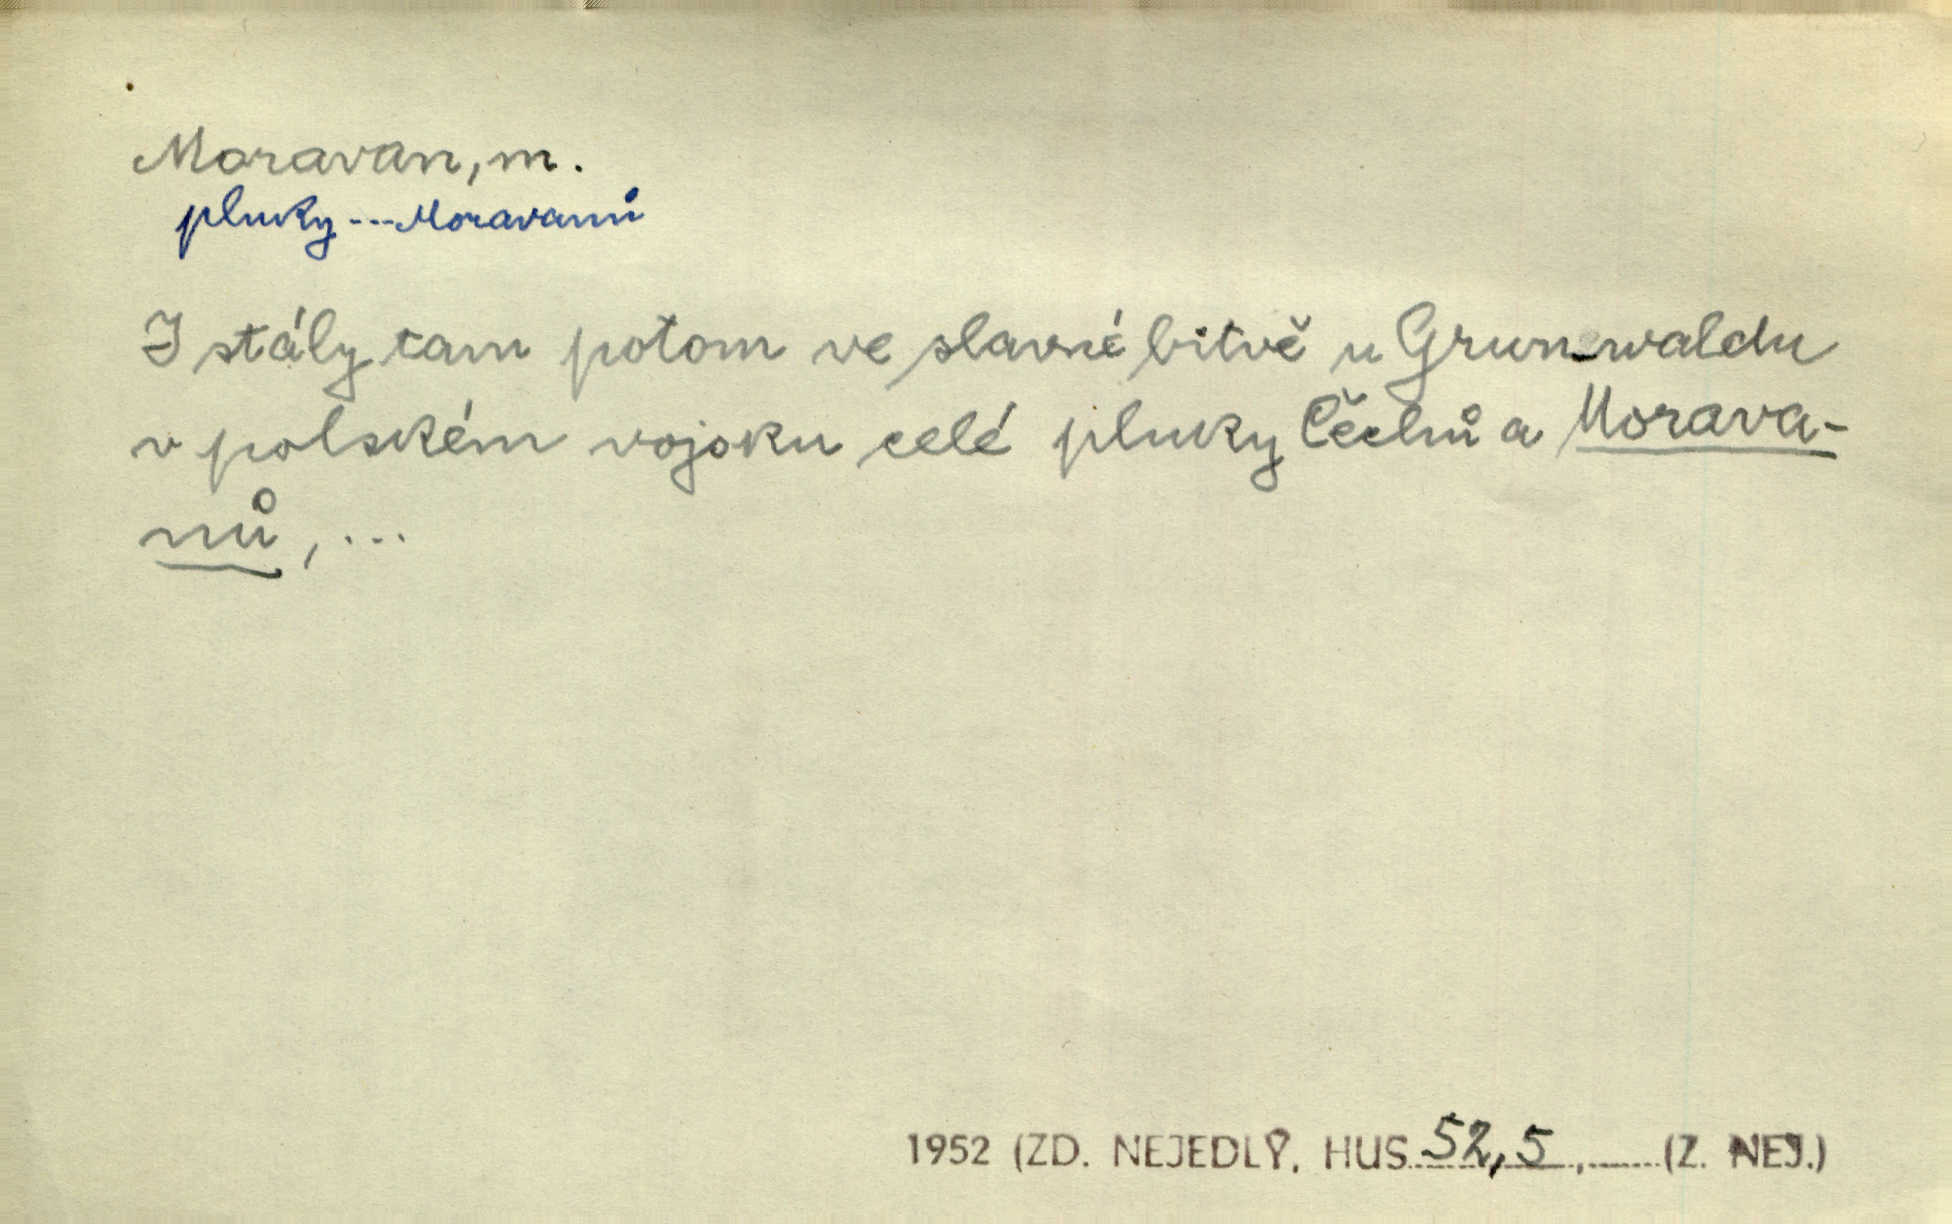 Moravan, m.
pluky --- Moravanů
I stály tam potom ve slavné bitvě u Grunwaldu
v polském vojsku celé pluky Čechů a Morava-
nů, ...
1952 (ZD. NEJEDLÝ, HUS 52,5 , (Z. NEJ.)